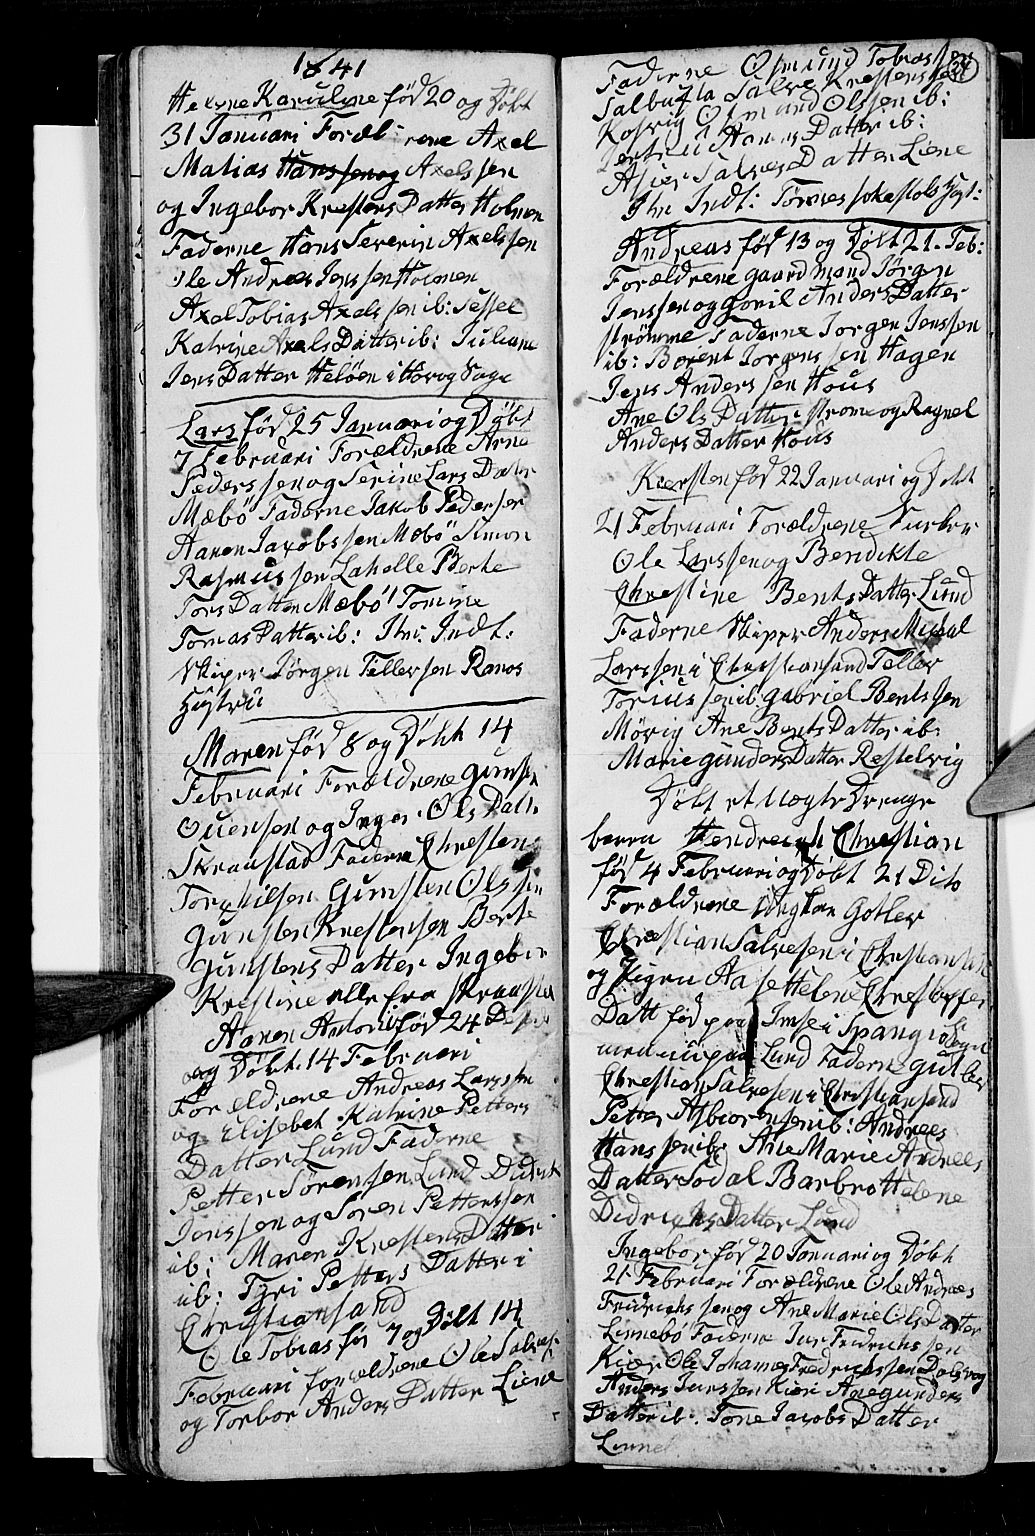 1841
Helene Karuline fød 20 og Døbt
31 Januari Foræl-rene Axel
Matias Hanssen og Axelssen
og Ingebor Krestens Datter Holmen
Faderne Hans Severin Axelssen
Ole Andreas Jenssen Holmen
Axel Tobias Axelssen ib: Sessel
Katrine Axels Datter ib: Juliane
Jens Datter Heløen i Havog Sogn
Lars fød 25 Januari og Døbt
7 Februari Forældrene Arne
Pederssen og Serine Lars Datter
Mæbø Faderne Jakob Pedersen
Aanen Jacobssen Mæbø Simon
Rasmussen Lahelle Berte
Tors Datter Mæbø Tomine
Tomas Datter ib: Ihr: Indt:
Skiper Jørgen Tellersen Ranos
Hustru
Maren fød 8 og Døbt 14
Februari Forældrene Gunste
Ouensen og Inger Ols Datt
Skraastad Faderne Chresten
Torkildsen Gunsten Olssen
Gunsten Krestensen Berte
Gunstens Datter Ingebor
Krestine alle fra Skraastad
Aanen Antoni fød 24 Des
og Døbt 14 Februari
Forældrene Andreas Larssen
og Elisebet Katrine Petters
Datter Lund Faderne
Petter Sørensen Lund Didrik
Jenssen og Søren Petterssen
ib: Maren Krestens Datter
ib: Tyri Petters Datter i
Christiansand
Ole Tobias fø 7 og Døbt 14
Februari forældrene Ole Salves
og Torbor Anders Datter Liene
Faderne Osmund Tobias
Salbugta Salve Krestenssen
Kosvig Osmund Olssen ib:
Aanens Datter ib:
Asier Salves Datter Liene
Ihr Indt: Tomes
Andreas fød 13 og Døbt 21. Feb:
Forældrene gaardmand Jørgen
Jenssen og Goril Anders Datter
Strømme Faderne Jorgen Jenssen
ib: Borent Jorgenssen Hagen
Jens Anderssen Hous
Ane Ols Datter Strome og Ragnel
Anders Datter Hous
Kiersten fød 22 Januari og Døbt
21 Februari Forældrene
Ole Larssen og Bendikte
Chrestine Bents Datter Lund
Faderne Skiper Anders Mikal
Larssen i Chrestiansand Teller
Toriussen ib: Gabriel Bentssen
Møvig Ane Bents Datter ib:
Marie Gunders Datter Restelvig
Døbt et Uægte Drenge
barn Hendreich Chrestian
fød 4 Februari og Døbt 21 Dito
Forældrene Ungkar Gotler
Chrestian Salvesen i Chrestiansan
og Pigen Aase Helene Chrestoffer
Datt fød paa Imse i Spangr Sogn
men nu paa Lund Faderne Gutler
Chrestian Salvesen i Christiansand
Petter Asbiorensen ib: Andrees
Hanssen ib: Ane Marie Andrees
Datter Sødal Barbro Helene
Didrichs Datter Lund
Ingebor fød 20 Januari og Døbt
21 Februari Forældrene Ole Andrees
Fridrichssen og Ane Marie Ols Datter
Linnebø Faderne Jur Fridrichssen
Kier Ole Johannes Fredrichssen Dalsvog
Anders Jurssen Kieri Anegunders
Datter ib: Tone Jacobs Datter